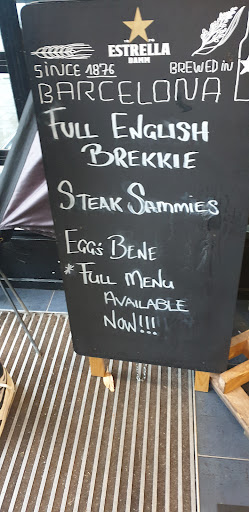 ESTRELLA
DAMM
SINCE 1876 BREWED IN
BARCELONA
FULL ENGLISH
BREKKIE
STEAK SAMMIES
EGG'S BENE
* FULL MENU
AVAILABLE
NOW!!!